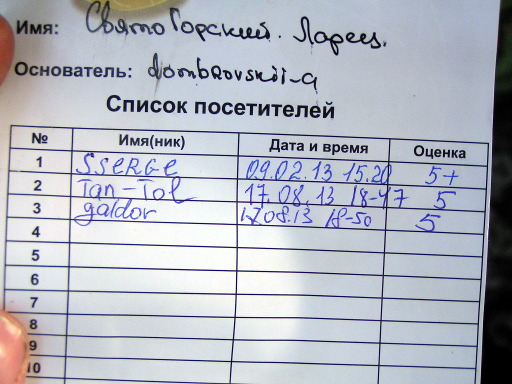 Имя: Свято Горский. Ларец.
Основатель: dombrovskii-a
Список посетителей
№ Имя(ник) Дата и время Оценка
1 SSERGE 09.02.13 15.20 5+
2 Tan-Tol 17.08.13 18-47 5
3 galdor 17.08.13 18-50 5
4
5
6
7
8
9
10